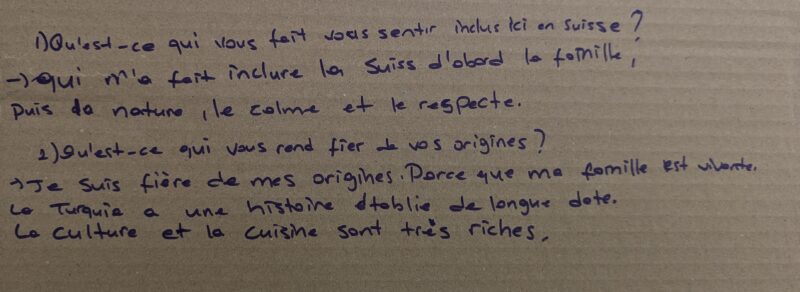 1) Qu'est-ce qui vous fait vous sentir inclus ici en suisse ?
→ Qui m'a fait inclure la Suiss d'abord la famille,
Puis la nature, le calme et le respecte.
2) Qu'est-ce qui vous rend fier de vos origines ?
→ Je suis fière de mes origines. Parce que ma famille est vivante.
La Turquie a une histoire établie de longue date.
La culture et la cuisine sont très riches.